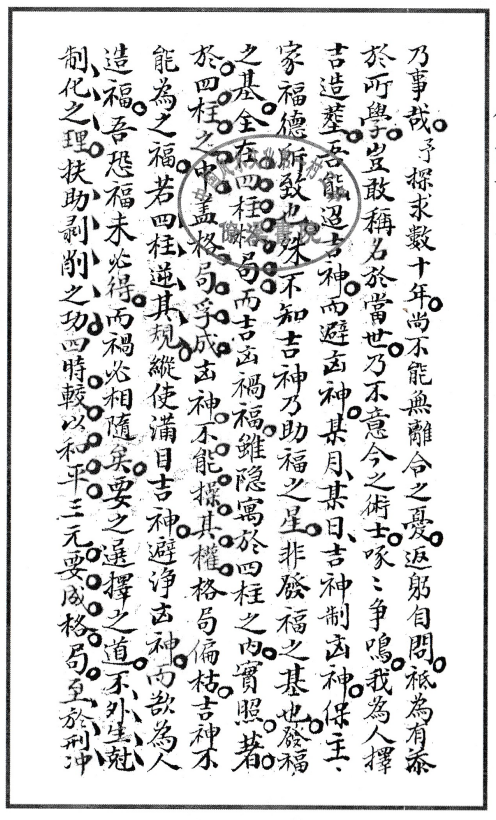 乃事哉予探求數十年尚不能無離合之憂返躬自問祗為有忝
於所學豈敢稱名於當世乃不意今之術士啄〻爭鳴我為人擇
吉造塟吾能迎吉神而避凶神某月某日吉神制凶神保主〻
家福德所致也殊不知吉神乃助福之星非發福之基也發福
之基全在四柱格局而吉凶禍福雖隐寓於四柱之內實照著
於四柱之中盖格局孚成凶神不能操其權格局偏枯吉神不
能為之福若四柱逆其規縱使滿目吉神避浄凶神而欲為人
造福吾恐福未必得而禍必相隨矣要之選擇之道不外生尅
制化之理扶助剥削之功四時較以和平三元要成格局至於刑冲